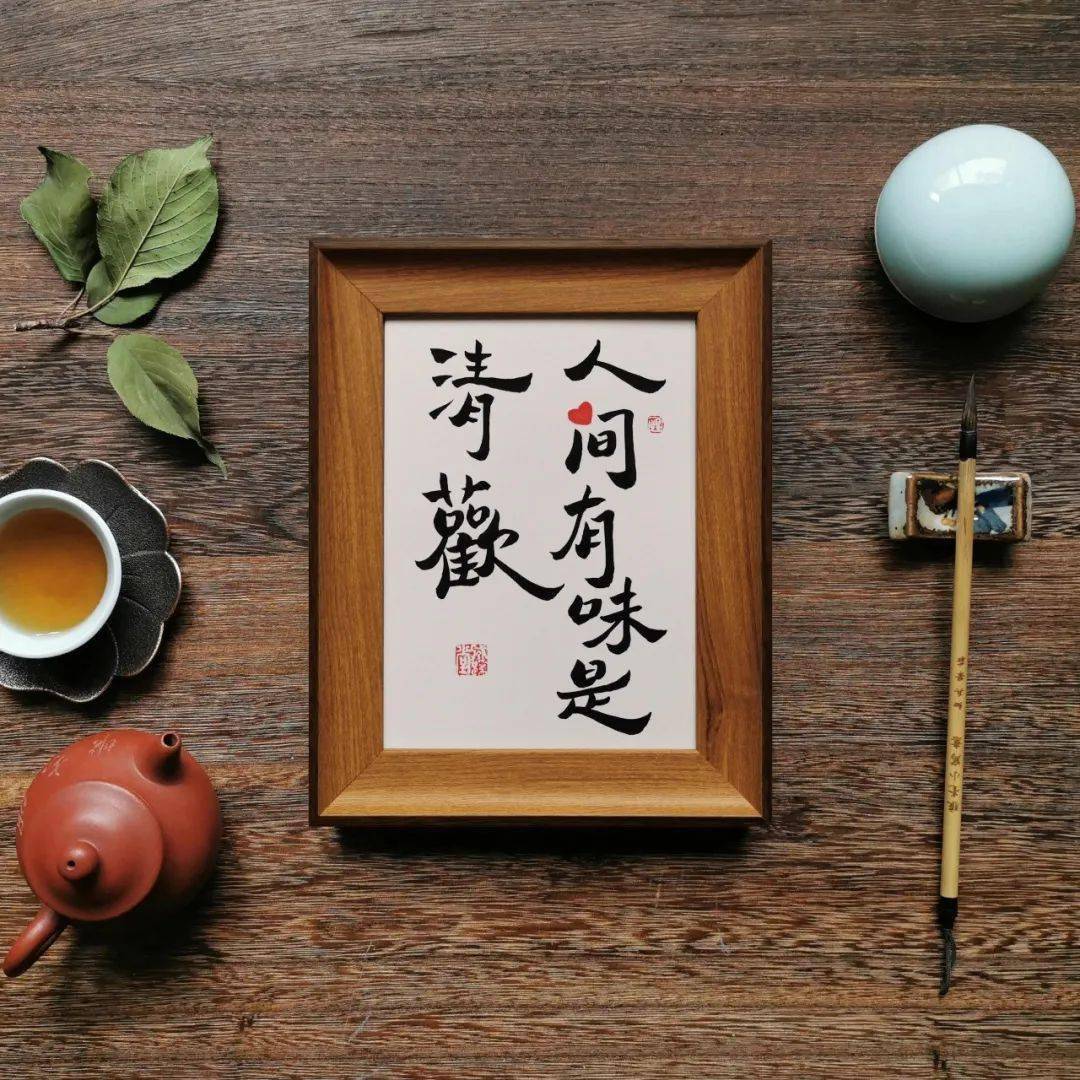 人间有味是
清歡